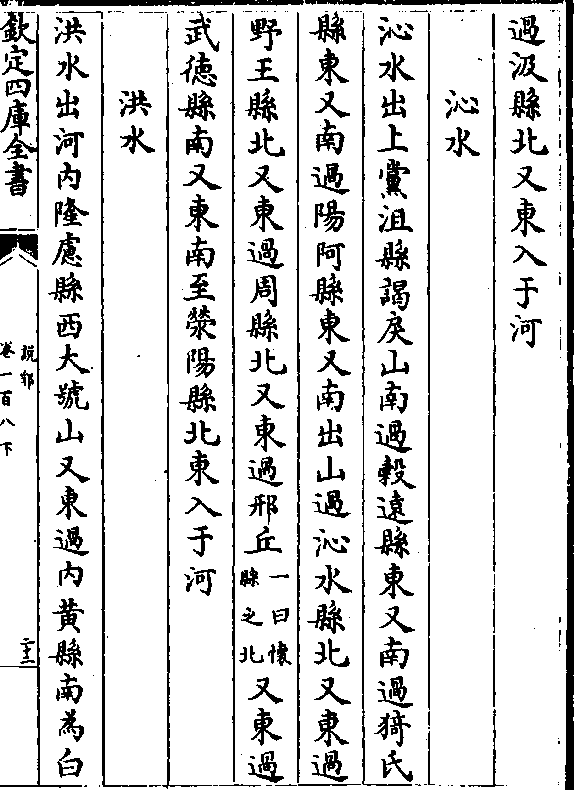 過汲縣北又東入于河
沁水
沁水出上黨沮縣謁戾山南過穀遠縣東又南過猗氏
縣東又南過陽阿縣東又南出山過沁水縣北又東過
野王縣北又東過周縣北又東過邢丘一曰懷縣之北又東過
武德縣南又東南至滎陽縣北東入于河
洪水
洪水出河内隆慮縣西大號山又東過内黄縣南為白
欽定四庫全書
說郛
卷一百八下
二十三